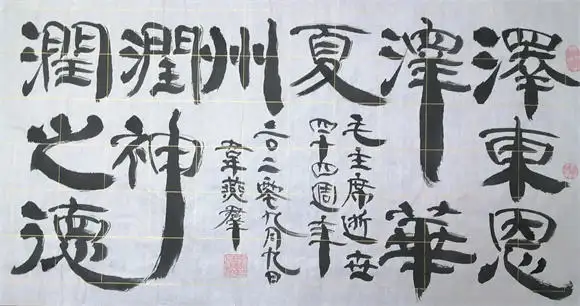 澤東恩
澤華
夏
潤之德
潤神
州
毛主席逝世
四十四週年
二〇二零九月九日
韋燕羣